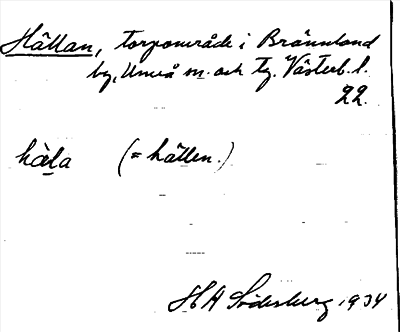 Hällan, torpområde i Brännland
by, Umeå m. och tg. Västerb. l.
22.
hàla (= hällen.)
HA Söderberg 1934